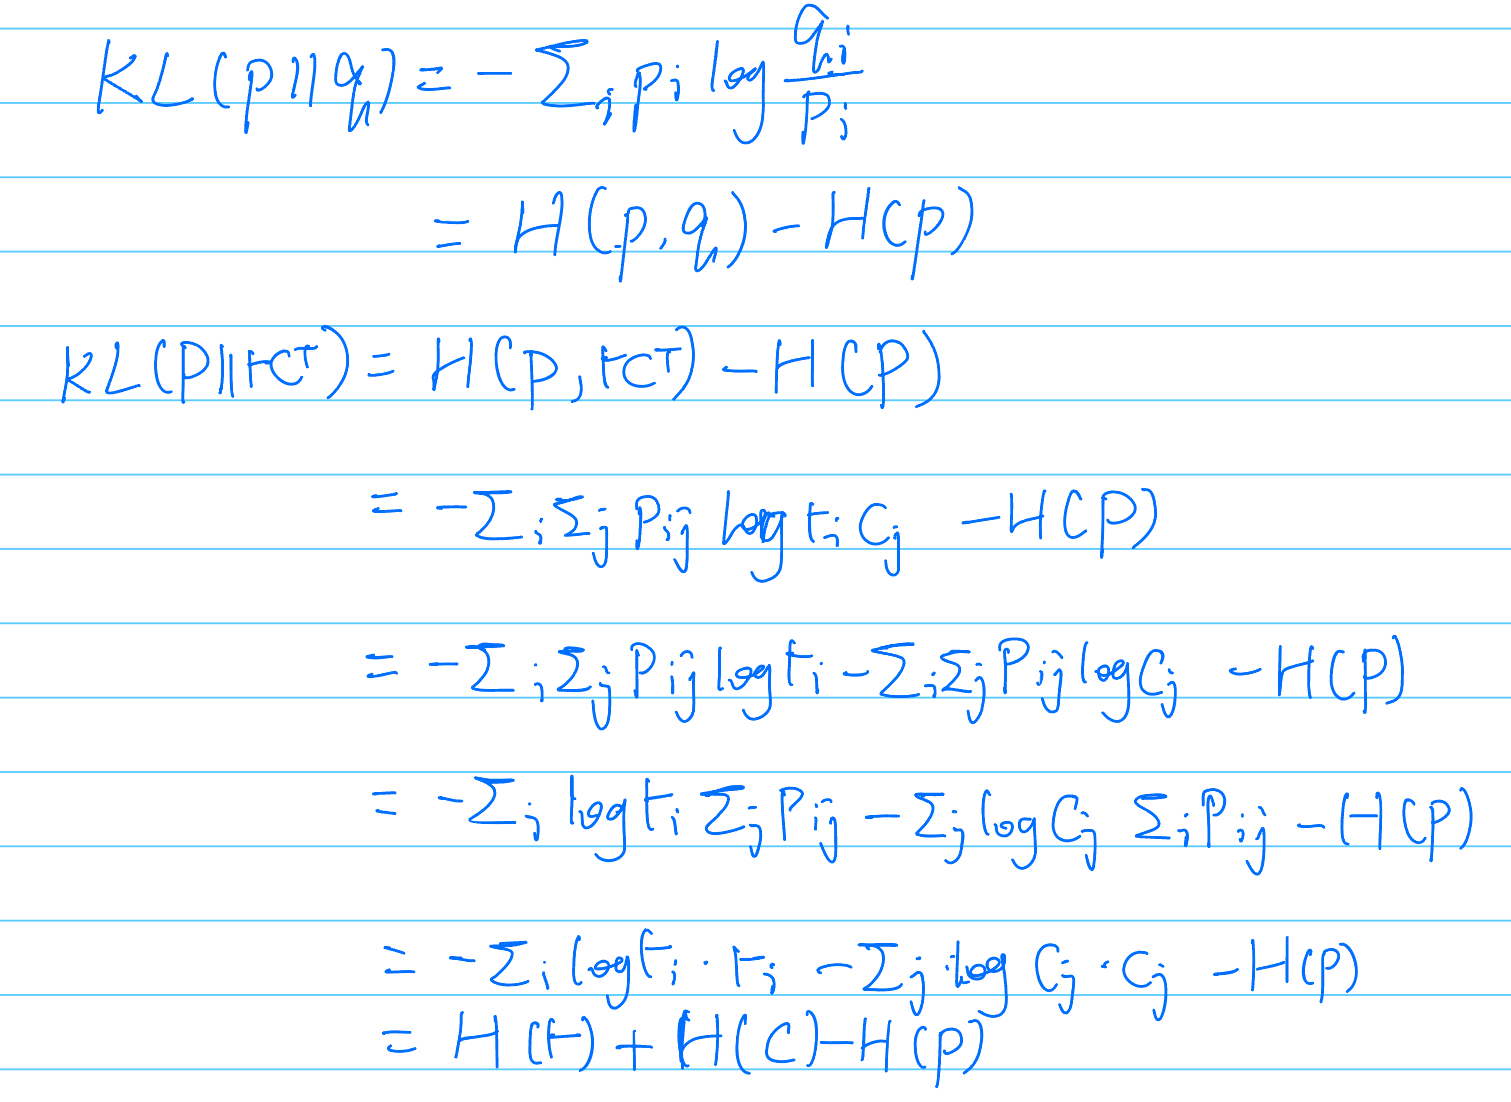 KL(p||q) = -Σ_i p_i log q_i/p_i
= H(p,q) - H(p)
KL(P||rcᵀ) = H(P,rcᵀ) - H(P)
= -Σ_i Σ_j P_ij log r_i c_j - H(P)
= -Σ_i Σ_j P_ij log r_i - Σ_i Σ_j P_ij log c_j - H(P)
= -Σ_i log r_i Σ_j P_ij - Σ_j log c_j Σ_i P_ij - H(P)
= -Σ_i log r_i · r_i - Σ_j log c_j · c_j - H(P)
= H(r) + H(c) - H(P)